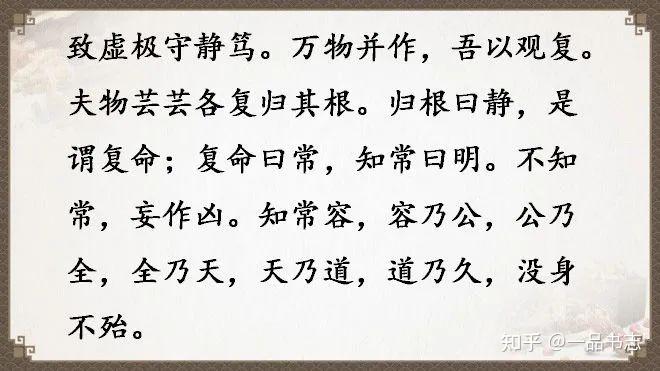 致虚极守静笃。万物并作，吾以观复。
夫物芸芸各复归其根。归根曰静，是
谓复命；复命曰常，知常曰明。不知
常，妄作凶。知常容，容乃公，公乃
全，全乃天，天乃道，道乃久，没身
不殆。
知乎 @一品书志